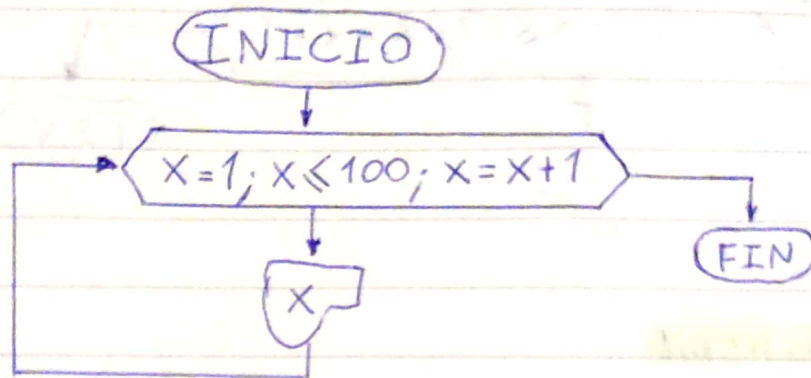 INICIO
X=1; X≤100; X=X+1
FIN
X